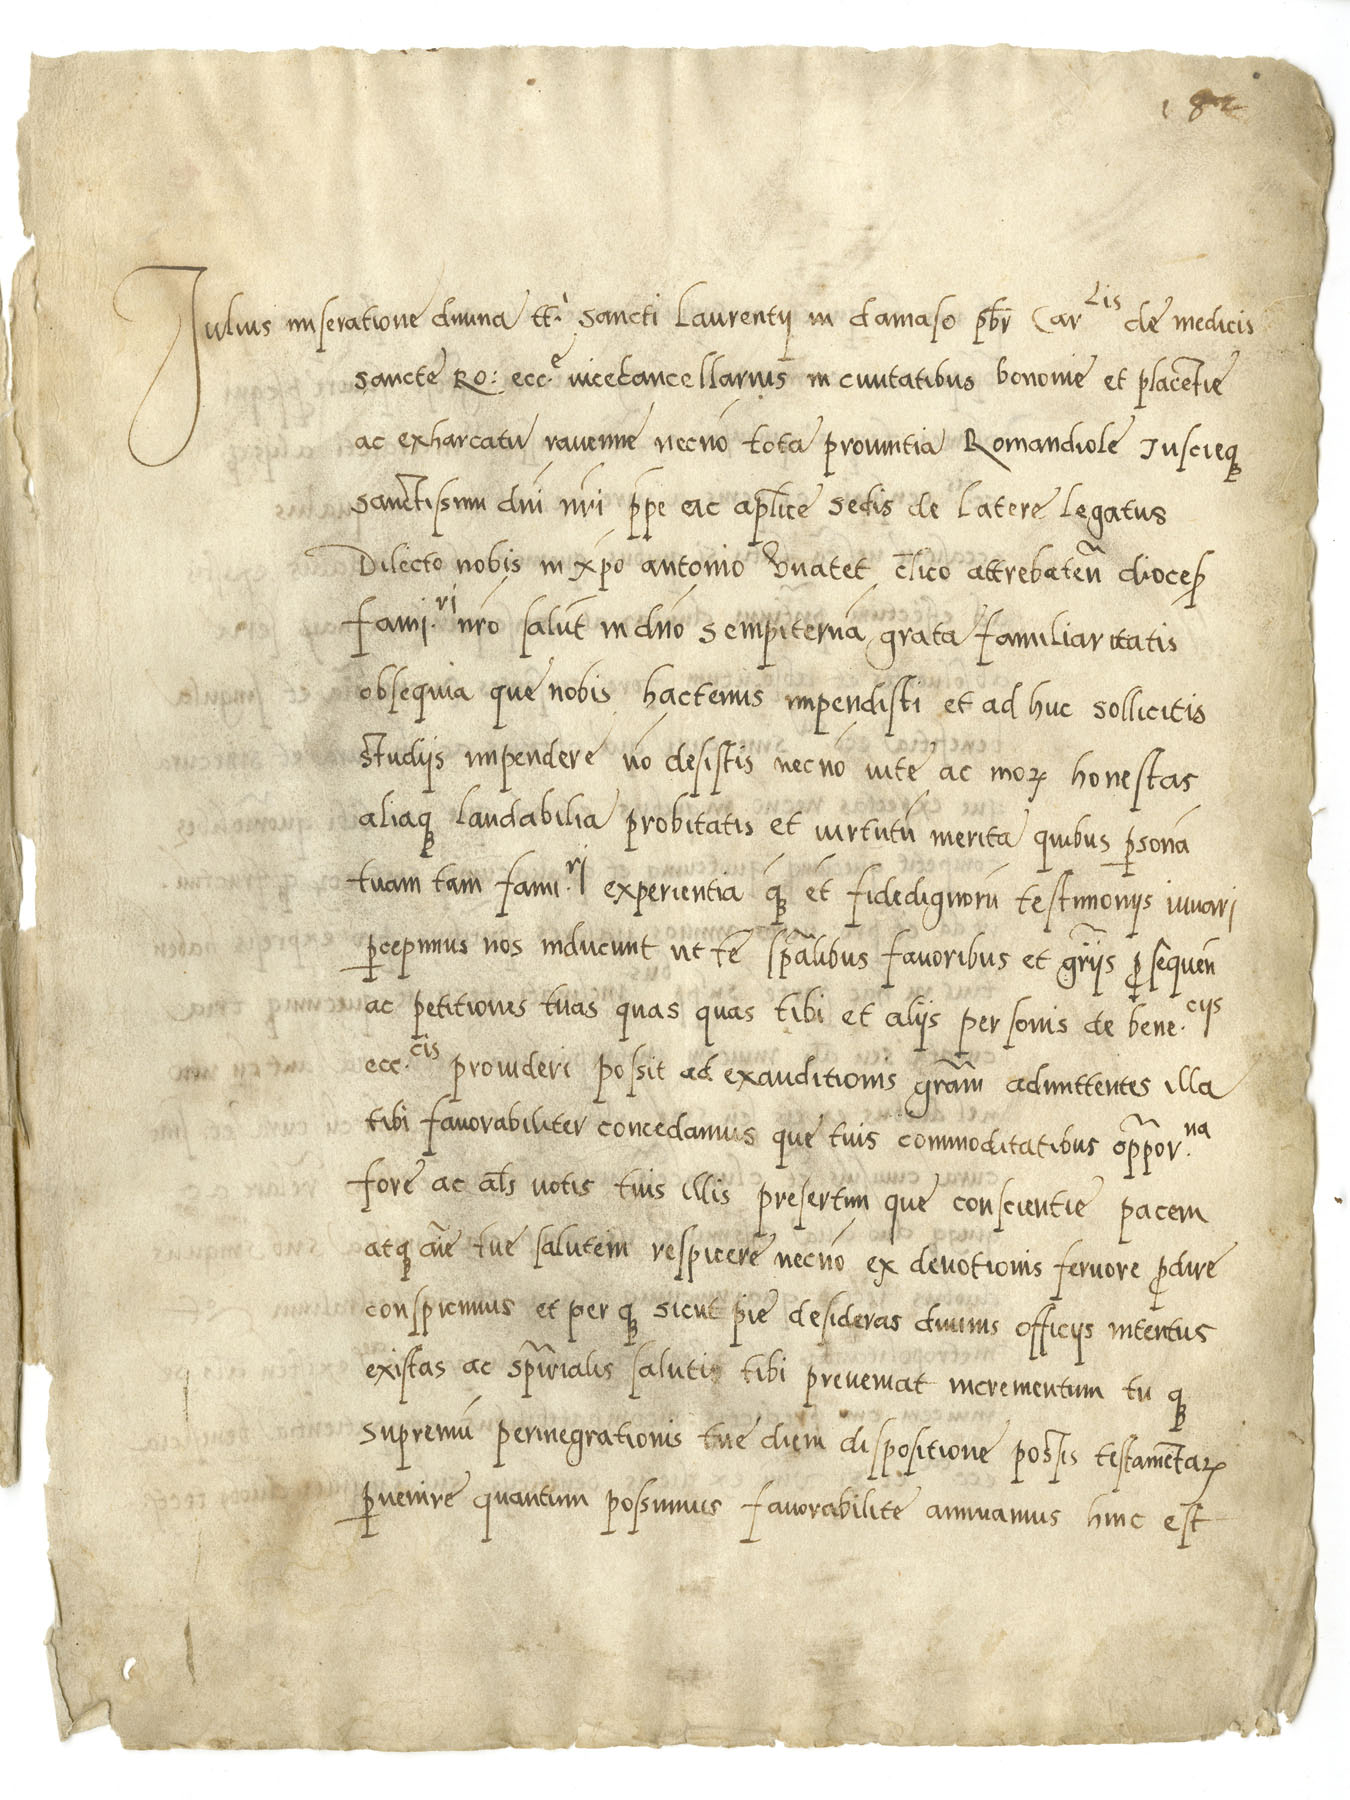 182
Julius miseratione divina tt.i Sancti Laurentij in damaso pbr Car.lis de medicis
sancte Ro: ecc.e vicecancellarius in civitatibus bononie et placentie
ac exharcatu ravenne necnō tota provintia Romandiole Jusq
sanctissimi dni nri ppe ac aplice sedis de latere legatus
Dilecto nobis in xpo antonio clico attrebateñ dioces
fami.ri nro salut in dño sempiternā grata familiaritatis
obsequia que nobis hactenus impendisti et ad huc sollicitis
studijs impendere nō desistis necnō vite ac moꝝ honestas
aliaqꝫ laudabilia probitatis et virtutū merita quibus ꝑsonā
tuam tam fami.ri experientia qꝫ et fidedignorū testimonijs iuvari
ꝑcepimus nos inducunt ut te spālibus favoribus et grijs ꝓsequeñ
ac petitiones tuas quas quas tibi et alijs personis de bene.cijs
ecc.cis provideri possit ad exauditionis grām admittentes illa
tibi favorabiliter concedamus que tuis commoditatibus oppor.na
fore ac als votis tuis illis presertim que conscientie pacem
atqꝫ aīe tue salutem respicere necnō ex devotionis fervore ꝓdire
conspicimus et per qꝫ sicut pie desideras divinis officijs intentus
existas ac spiritualis salutis tibi proveniat incrementum tu qꝫ
supremū perinegrationis tue diem dispositione possis testamentaꝝ
ꝑvenire quantum possumus favorabilite annuamus hinc est